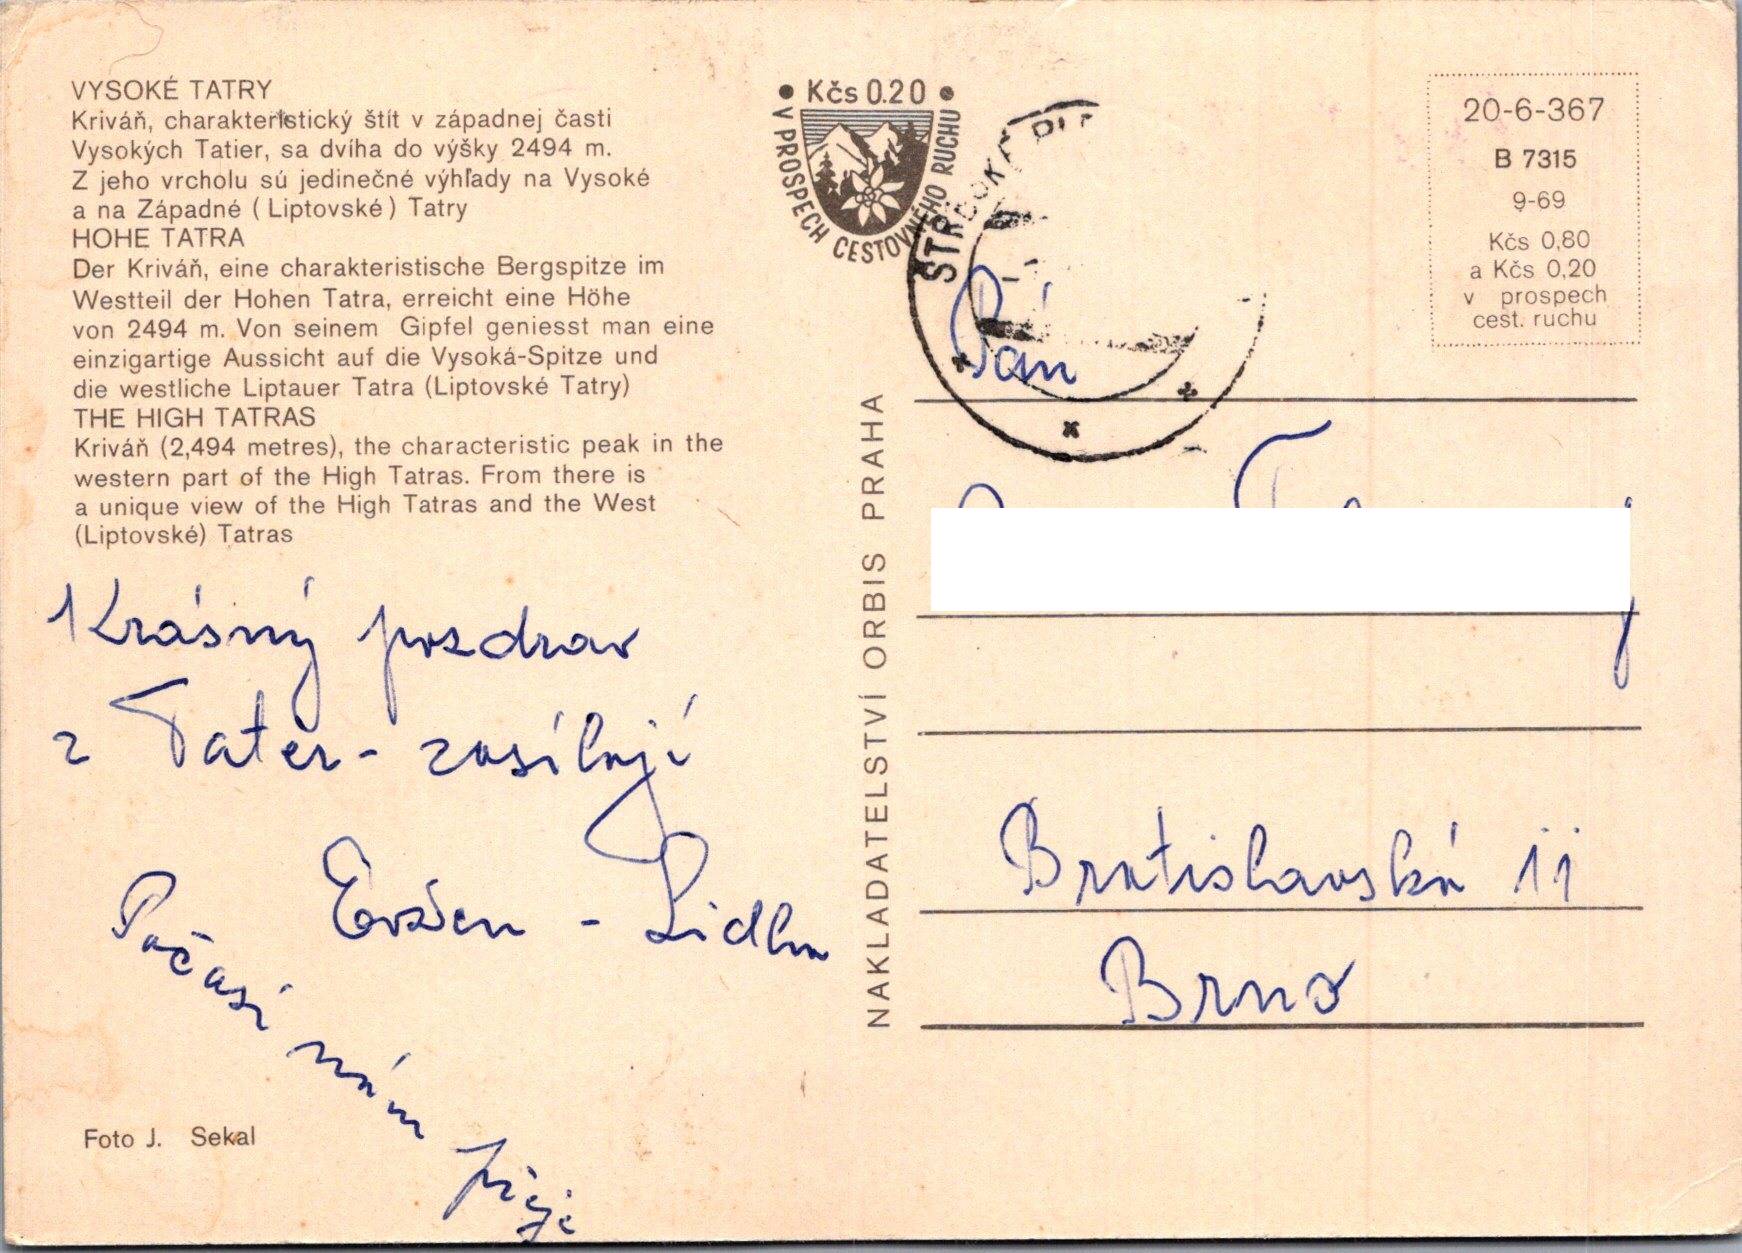 VYSOKÉ TATRY
Kriváň, charakteristický štít v západnej časti
Vysokých Tatier, sa dvíha do výšky 2494 m.
Z jeho vrcholu sú jedinečné výhľady na Vysoké
a na Západné (Liptovské) Tatry
HOHE TATRA
Der Kriváň, eine charakteristische Bergspitze im
Westteil der Hohen Tatra, erreicht eine Höhe
von 2494 m. Von seinem Gipfel geniesst man eine
einzigartige Aussicht auf die Vysoká-Spitze und
die westliche Liptauer Tatra (Liptovské Tatry)
THE HIGH TATRAS
Kriváň (2,494 metres), the characteristic peak in the
western part of the High Tatras. From there is
a unique view of the High Tatras and the West
(Liptovské) Tatras
Krásný pozdrav
z Tater - zasílají
Evžen - Lidka
Počasí nám
přeje
Foto J. Sekal
Kčs 0.20
V PROSPECH CESTOVNÉHO RUCHU
NAKLADATELSTVÍ ORBIS PRAHA
20-6-367
B 7315
9-69
Kčs 0,80
a Kčs 0,20
v prospech
cest. ruchu
Pán
Bratislavská 11
Brno